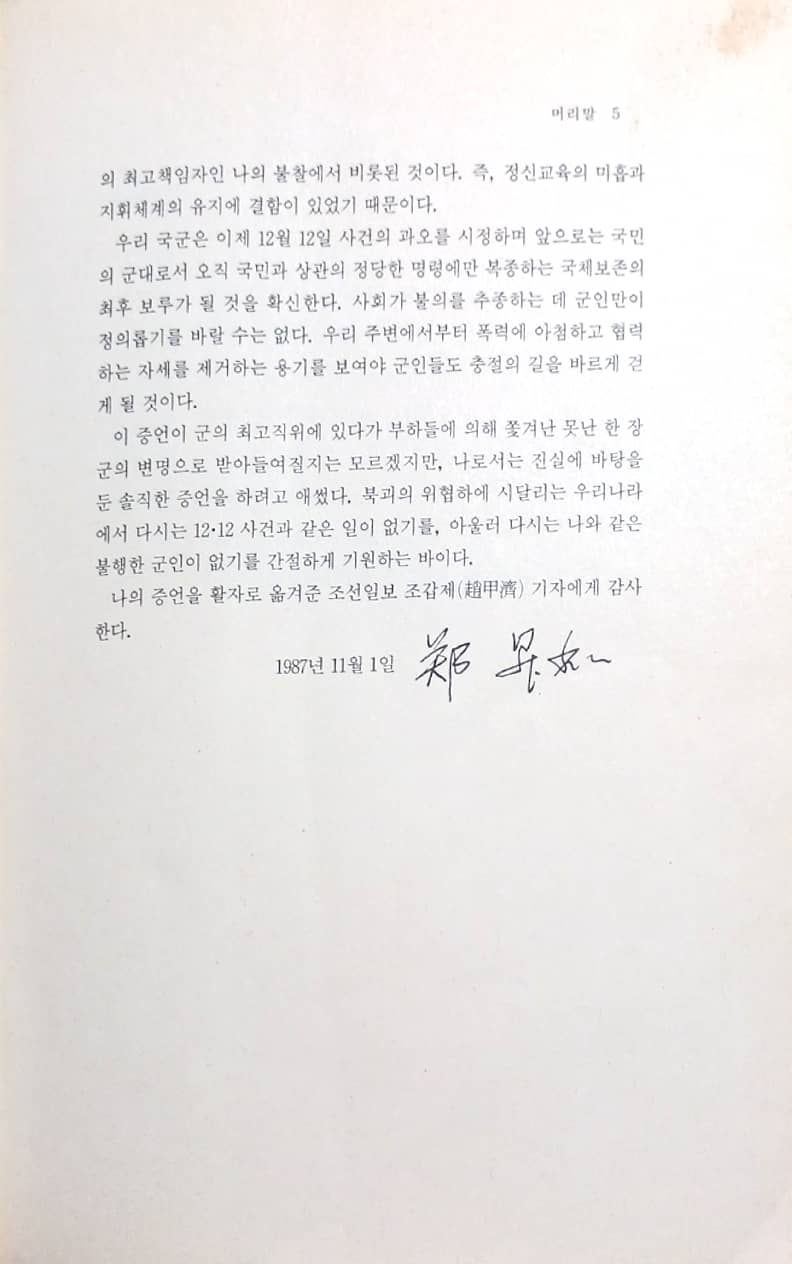 머리말 5
의 최고책임자인 나의 불찰에서 비롯된 것이다. 즉, 정신교육의 미흡과
지휘체계의 유지에 결함이 있었기 때문이다.
우리 국군은 이제 12월 12일 사건의 과오를 시정하며 앞으로는 국민
의 군대로서 오직 국민과 상관의 정당한 명령에만 복종하는 국체보존의
최후 보루가 될 것을 확신한다. 사회가 불의를 추종하는 데 군인만이
정의롭기를 바랄 수는 없다. 우리 주변에서부터 폭력에 아첨하고 협력
하는 자세를 제거하는 용기를 보여야 군인들도 충절의 길을 바르게 걷
게 될 것이다.
이 증언이 군의 최고직위에 있다가 부하들에 의해 쫓겨난 못난 한 장
군의 변명으로 받아들여질지는 모르겠지만, 나로서는 진실에 바탕을
둔 솔직한 증언을 하려고 애썼다. 북괴의 위협하에 시달리는 우리나라
에서 다시는 12·12 사건과 같은 일이 없기를, 아울러 다시는 나와 같은
불행한 군인이 없기를 간절하게 기원하는 바이다.
나의 증언을 활자로 옮겨준 조선일보 조갑제(趙甲濟) 기자에게 감사
한다.
1987년 11월 1일 鄭 昇